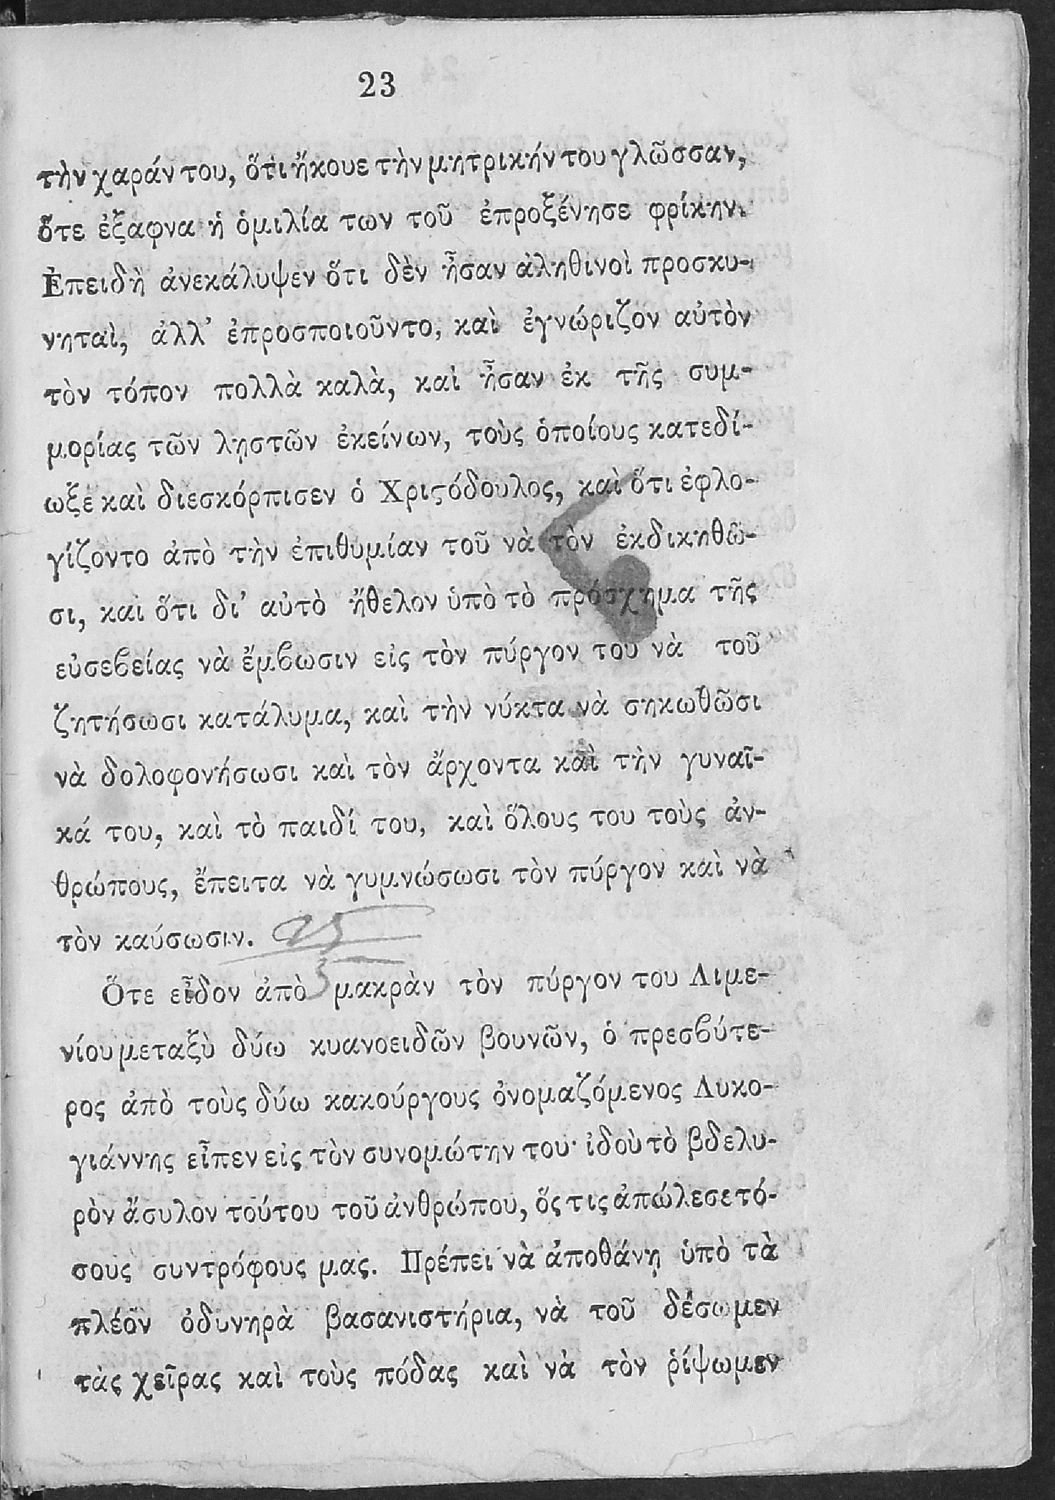 23
τὴν χαράν του, ὅτι ἤκουε τὴν μητρικήν του γλῶσσαν,
ὅτε ἐξαφνα ἡ ὁμιλία των τοῦ ἐπροξένησε φρίκην.
Ἐπειδὴ ἀνεκάλυψεν ὅτι δὲν ἦσαν ἀληθινοὶ προσκυ-
νηταὶ, ἀλλ’ ἐπροσποιοῦντο, καὶ ἐγνώριζον αὐτὸν
τὸν τόπον πολλὰ καλὰ, καὶ ἦσαν ἐκ τῆς συμ-
μορίας τῶν ληστῶν ἐκείνων, τοὺς ὁποίους κατεδί-
ωξε καὶ διεσκόρπισεν ὁ Χριϛόδουλος, καὶ ὅτι ἐφλο-
γίζοντο ἀπὸ τὴν ἐπιθυμίαν τοῦ νὰ τὸν ἐκδικηθῶ-
σι, καὶ ὅτι δι’ αὐτὸ ἤθελον ὑπὸ τὸ πρόσχημα τῆς
εὐσεϐείας νὰ ἔμϐωσιν εἰς τὸν πύργον του νὰ τοῦ
ζητήσωσι κατάλυμα, καὶ τὴν νύκτα νὰ σηκωθῶσι
νὰ δολοφονήσωσι καὶ τὸν ἄρχοντα καὶ τὴν γυναῖ-
κά του, καὶ τὸ παιδί του, καὶ ὅλους του τοὺς ἀν-
θρώπους, ἔπειτα νὰ γυμνώσωσι τὸν πύργον καὶ νὰ
τὸν καύσωσιν. 25
Ὅτε εἶδον ἀπὸ μακρὰν τὸν πύργον του Λιμε-
νίου μεταξὺ δύω κυανοειδῶν βουνῶν, ὁ πρεσϐύτε-
ρος ἀπὸ τοὺς δύω κακούργους ὀνομαζόμενος Λυκο-
γιάννης εἶπεν εἰς τὸν συνομώτην του· ἰδοὺ τὸ βδελυ-
ρὸν ἄσυλον τούτου τοῦ ἀνθρώπου, ὅς τις ἀπώλεσε τό-
σους συντρόφους μας. Πρέπει νὰ ἀποθάνῃ ὑπὸ τὰ
πλέον ὀδυνηρὰ βασανιστήρια, νὰ τοῦ δέσωμεν
τὰς χεῖρας καὶ τοὺς πόδας καὶ νὰ τὸν ῥίψωμεν